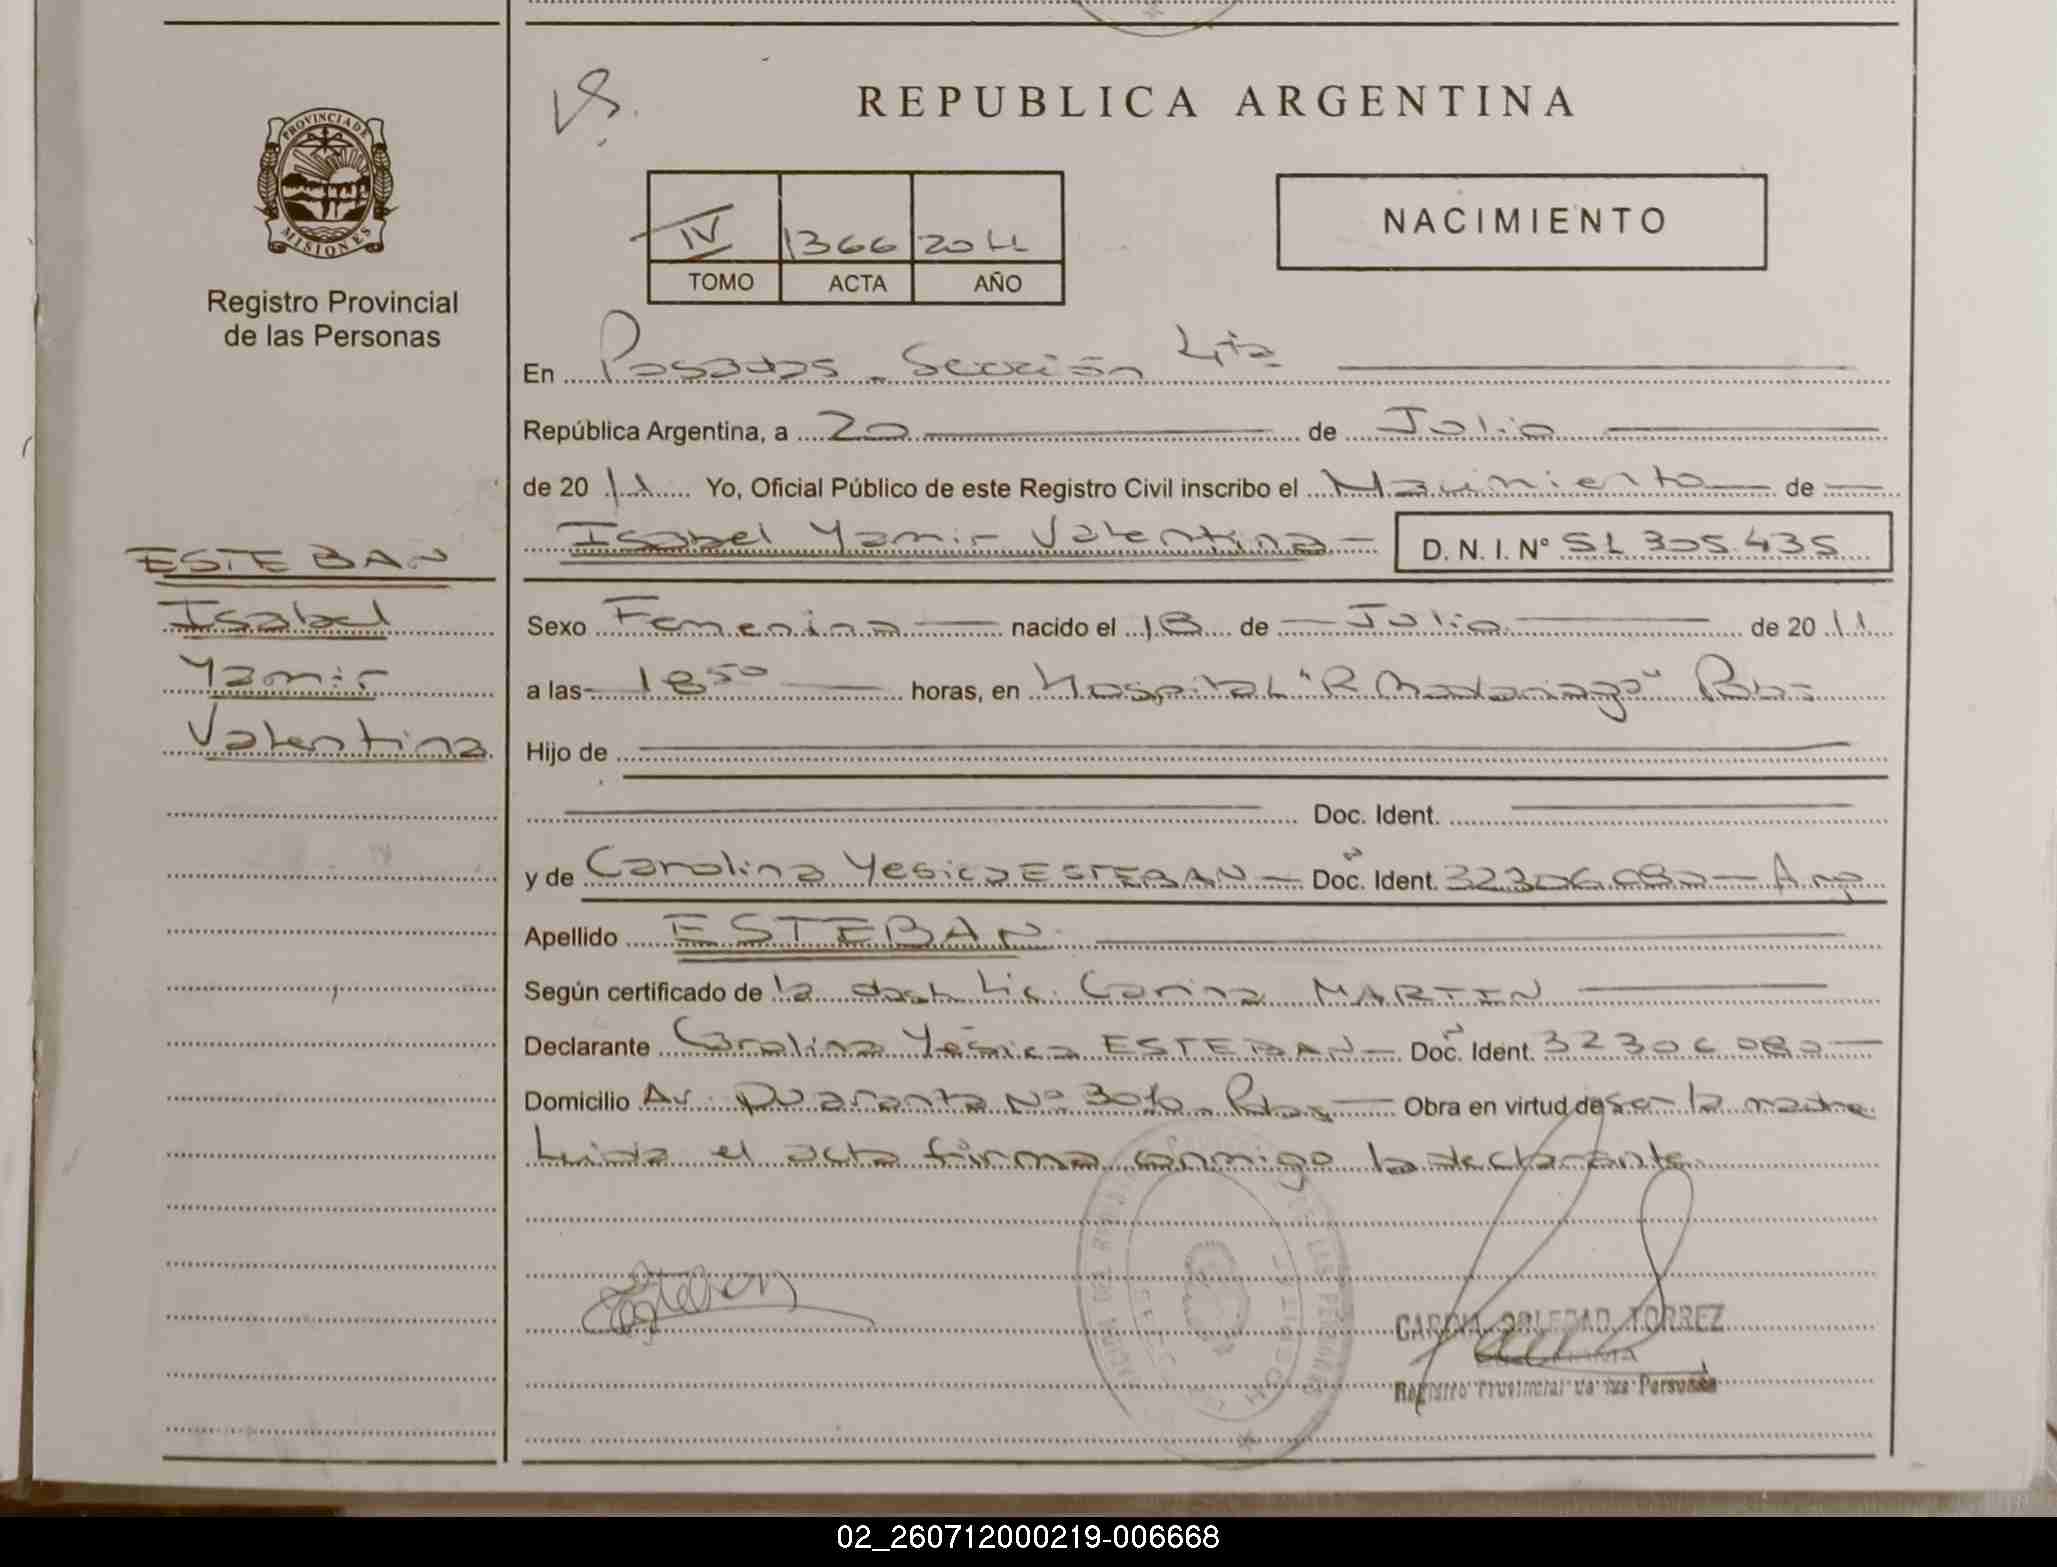 REPUBLICA ARGENTINA
PROVINCIA DE MISIONES
Registro Provincial
de las Personas
IV 1366 2011
TOMO ACTA AÑO
NACIMIENTO
En Posadas - Sección 4ta
República Argentina, a 20 de Julio
de 2011 Yo, Oficial Público de este Registro Civil inscribo el Nacimiento de
Isabel Yamir Valentina D. N. I. Nº 51.305.435
ESTEBAN
Isabel
Yamir
Valentina
Sexo Femenina nacido el 18 de Julio de 2011
a las 18 50 horas, en Hospital "R Madariaga" Pdas
Hijo de
Doc. Ident.
y de Carolina Yesica ESTEBAN Doc. Ident. 32306.080 - Arg
Apellido ESTEBAN
Según certificado de la obst. Lic. Carina MARTIN
Declarante Carolina Yesica ESTEBAN Doc. Ident. 32306080
Domicilio Av. Quaranta Nº Pdas Obra en virtud de ser la madre
Leida el acta firma conmigo la declarante
Esteban
SOLEDAD TORREZ
Registro Provincial de las Personas
02_260712000219-006668